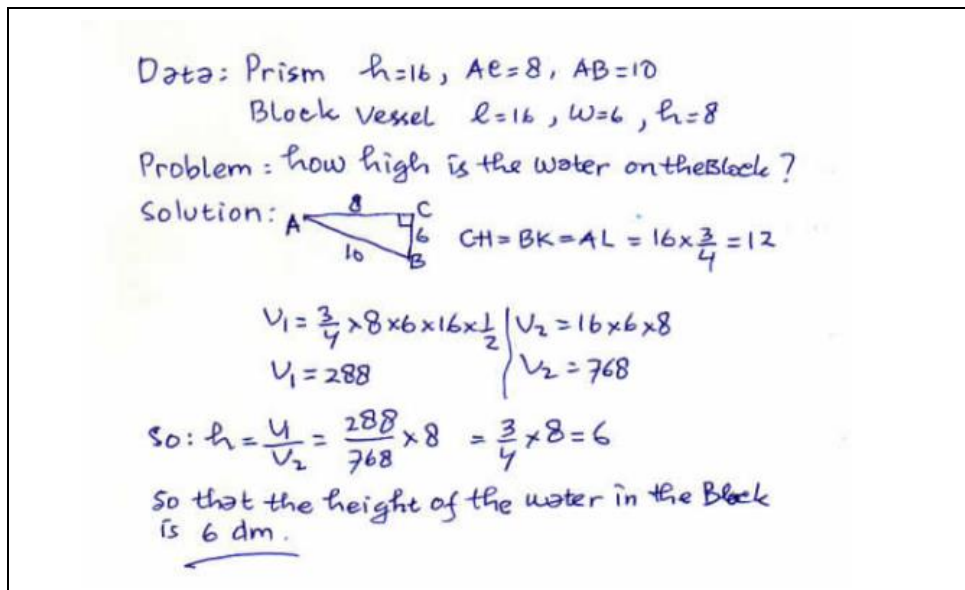 Data: Prism h=16, AC=8, AB=10
Block Vessel l=16, W=6, h=8
Problem: how high is the water on the Block?
Solution: A 8 C 6 10 B CH=BK=AL = 16×3/4 = 12
V₁ = 3/4 ×8×6×16×1/2 | V₂ = 16×6×8
V₁ = 288 | V₂ = 768
So: h = V₁/V₂ = 288/768 ×8 = 3/4 ×8 = 6
So that the height of the water in the Block
is 6 dm.